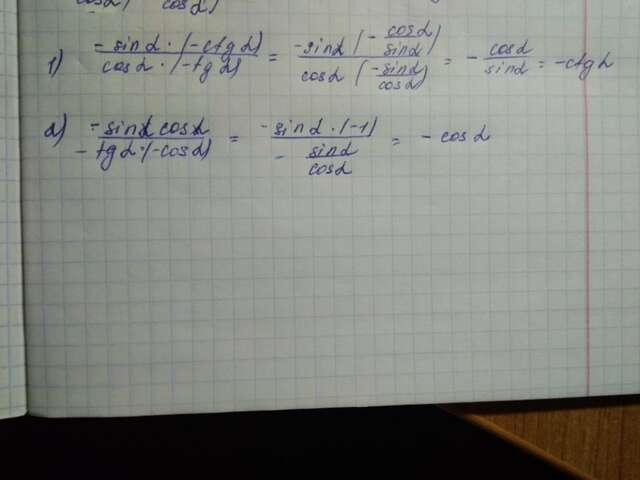 cosα / cosα)
1) = sinα · (-ctg α) / cosα · (-tg α) = -sinα (- cosα/sinα) / cosα (-sinα/cosα) = - cosα/sinα = -ctg α
2) = -sinα cosα / -tg α·(-cosα) = -sinα·(-1) / - sinα/cosα = - cosα